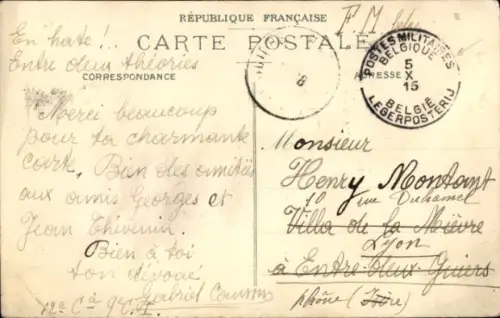 RÉPUBLIQUE FRANÇAISE
F M
CARTE POSTALE
CORRESPONDANCE
ADRESSE
POSTES MILITAIRES
BELGIQUE
5
X
15
BELGIË
LEGERPOSTERIJ
8
En hate !..
Entre deux théories
Merci beaucoup
pour ta charmante
carte. Bien des amitiés
aux amis Georges et
Jean Thévenin.
Bien à toi
ton dévoué
Gabriel
12e Cie
Monsieur
Henry Montant
10 rue Duhamel
Villa de la Mièvre
Lyon
à Entre-deux-Guiers
Rhône (Isère)